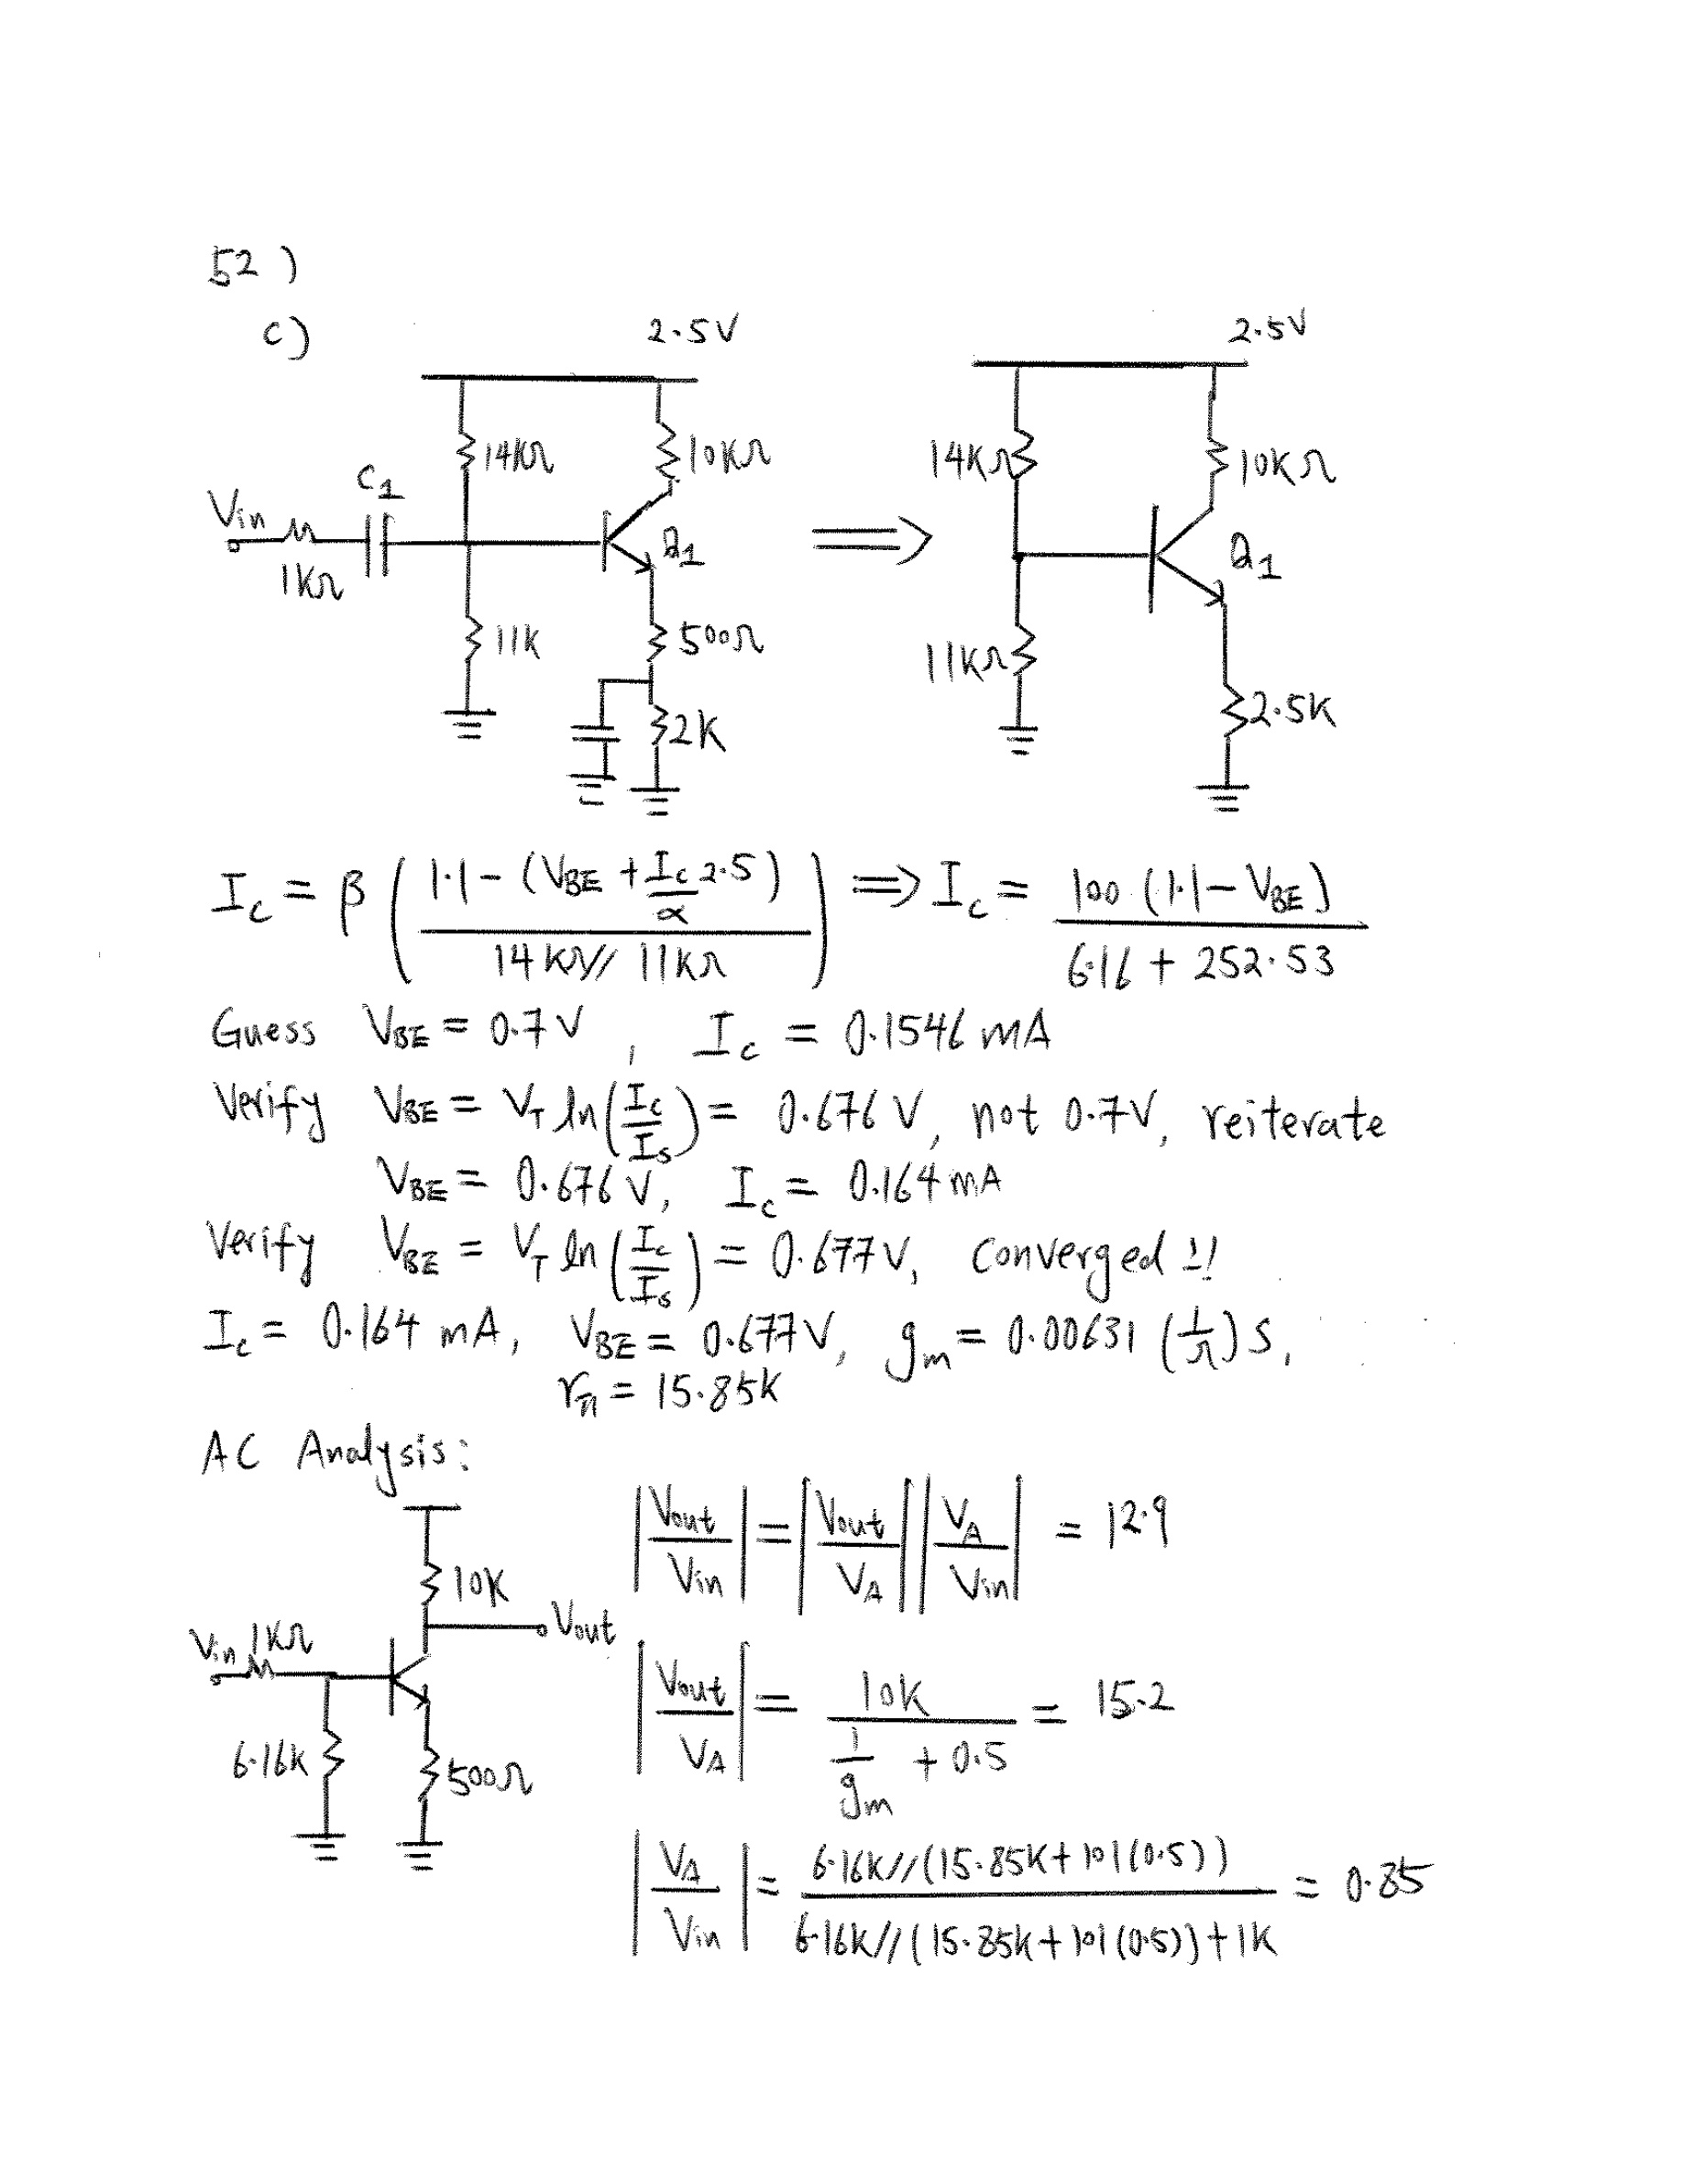 52)
c)
2.5V
2.5V
14KΩ
10KΩ
14KΩ
10KΩ
C1
Vin
1KΩ
Q1
⟹
Q1
11K
500Ω
11KΩ
2K
2.5K
I_c = β ( (1.1 - (V_BE + I_c/α 2.5)) / (14KΩ // 11KΩ) ) ⟹ I_c = 100 (1.1 - V_BE) / (6.16 + 252.53)
Guess V_BE = 0.7V, I_c = 0.1546 mA
Verify V_BE = V_T ln(I_c/I_s) = 0.676 V, not 0.7V, reiterate
V_BE = 0.676 V, I_c = 0.164 mA
Verify V_BE = V_T ln(I_c/I_s) = 0.677 V, converged !!
I_c = 0.164 mA, V_BE = 0.677V, g_m = 0.00631 (1/Ω) S,
r_π = 15.85K
AC Analysis:
|Vout/Vin| = |Vout/V_A| |V_A/Vin| = 12.9
10K
Vout
Vin 1KΩ
|Vout/V_A| = 10K / (1/g_m + 0.5) = 15.2
6.16K
500Ω
|V_A/Vin| = 6.16K//(15.85K+101(0.5)) / (6.16K//(15.85K+101(0.5))+1K) = 0.85